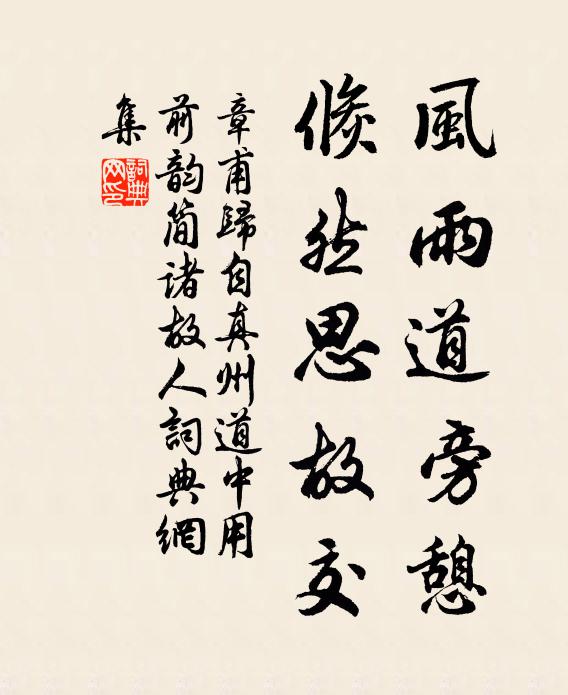 風雨道旁憩
倏然思故交
章甫歸自真州道中用
前韵简諸故人詞典網
集
詞典網印